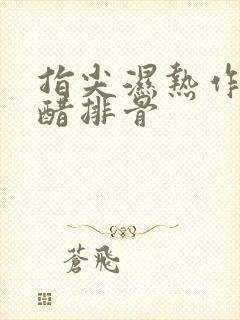 指尖濕熱作
醋排骨
蒼飛